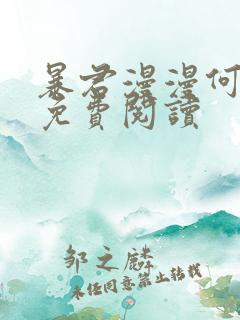 暴君漫漫何
免費閱讀
邹之麟
未经同意禁止转载